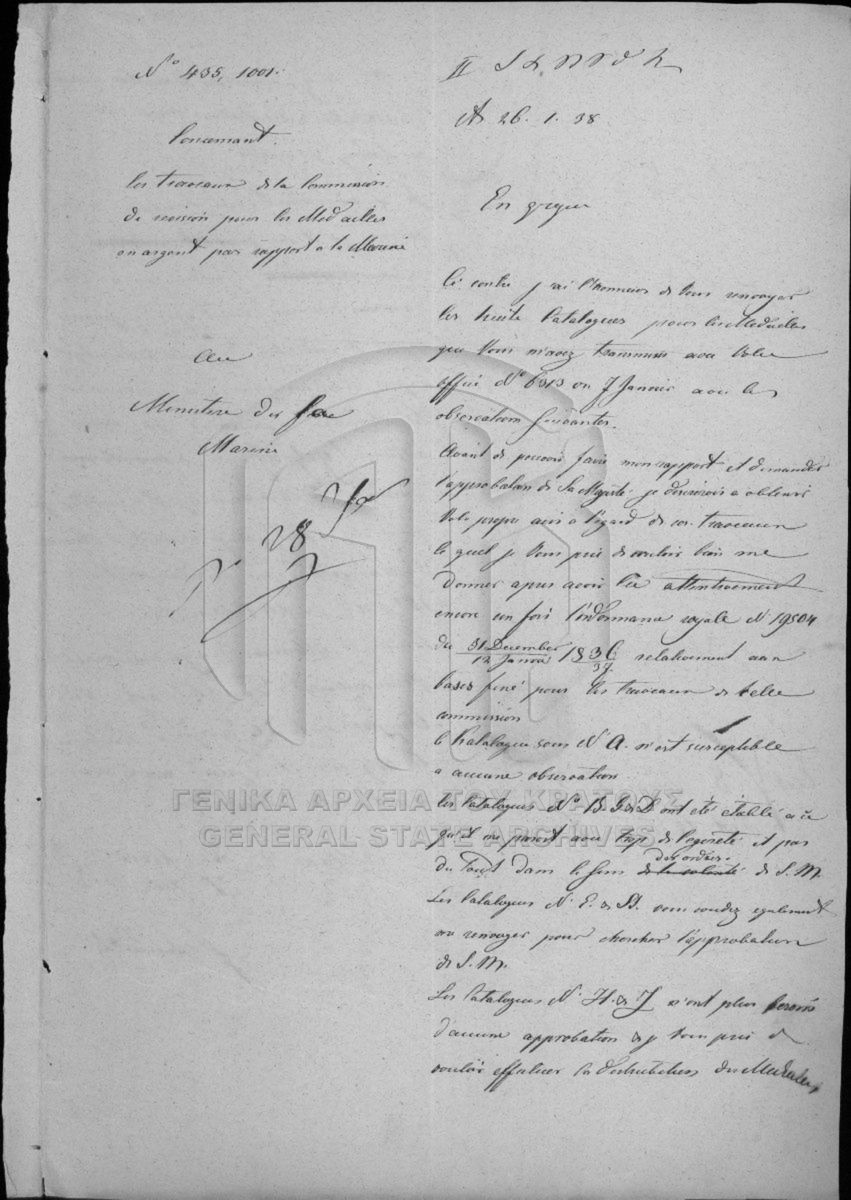 No 435, 1001.
Concernant
les travaux de la Commission
de revision pour les Medailles
en argent par rapport a la Marine
Au
Ministere de la
Marine
28
II
A 26. 1. 38
En grque
Ci contre j'ai l'honneur de Vous renvoyer
les huite Catalogues pour les Medailles
que Vous m'avez transmis avec Votre
office No 6313 du 7 Janvier avec les
observations suivantes.
Avant de pouvoir faire mon rapport et demander
l'approbation de Sa Majesté je desirerois a obtenir
Votre propre avis a l'égard de ces travaux
le quel je Vous prie de vouloir bien me
donner apres avoir lu attentivement
encore un fois l'ordonnance royale N 19504
du 31 Decembre / 12 Janvier 1836/37 relativement aux
bases fixé pour les travaux de cette
commission
le Catalogue sous N A. n'est susceptible
a aucune observation
les Catalogues No B. & D ont été établé a ce
qu'il me parait avec trop de legereté et pas
du tout dans le sens de la volonté des ordres de S. M.
Les Catalogues N. E. & vous voudez egalement
me renvoyer pour chercher l'approbation
de S. M.
Les Catalogues N. H. & J n'ont plus besoin
d'aucune approbation & je Vous prie de
vouloir effectuer la distribution des Medailles
ΓΕΝΙΚΑ ΑΡΧΕΙΑ ΤΟΥ ΚΡΑΤΟΥΣ
GENERAL STATE ARCHIVES